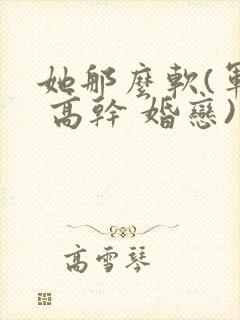 她那麼軟(軍
高幹 婚戀)
高雪琴